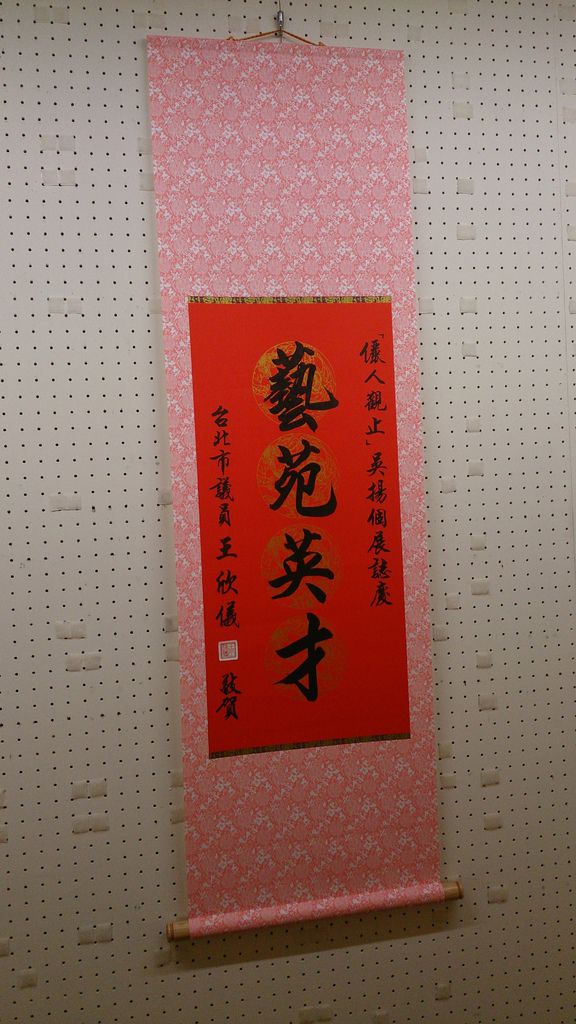 「儷人觀止」吳揚個展誌慶
藝苑英才
台北市議員王欣儀
敬賀